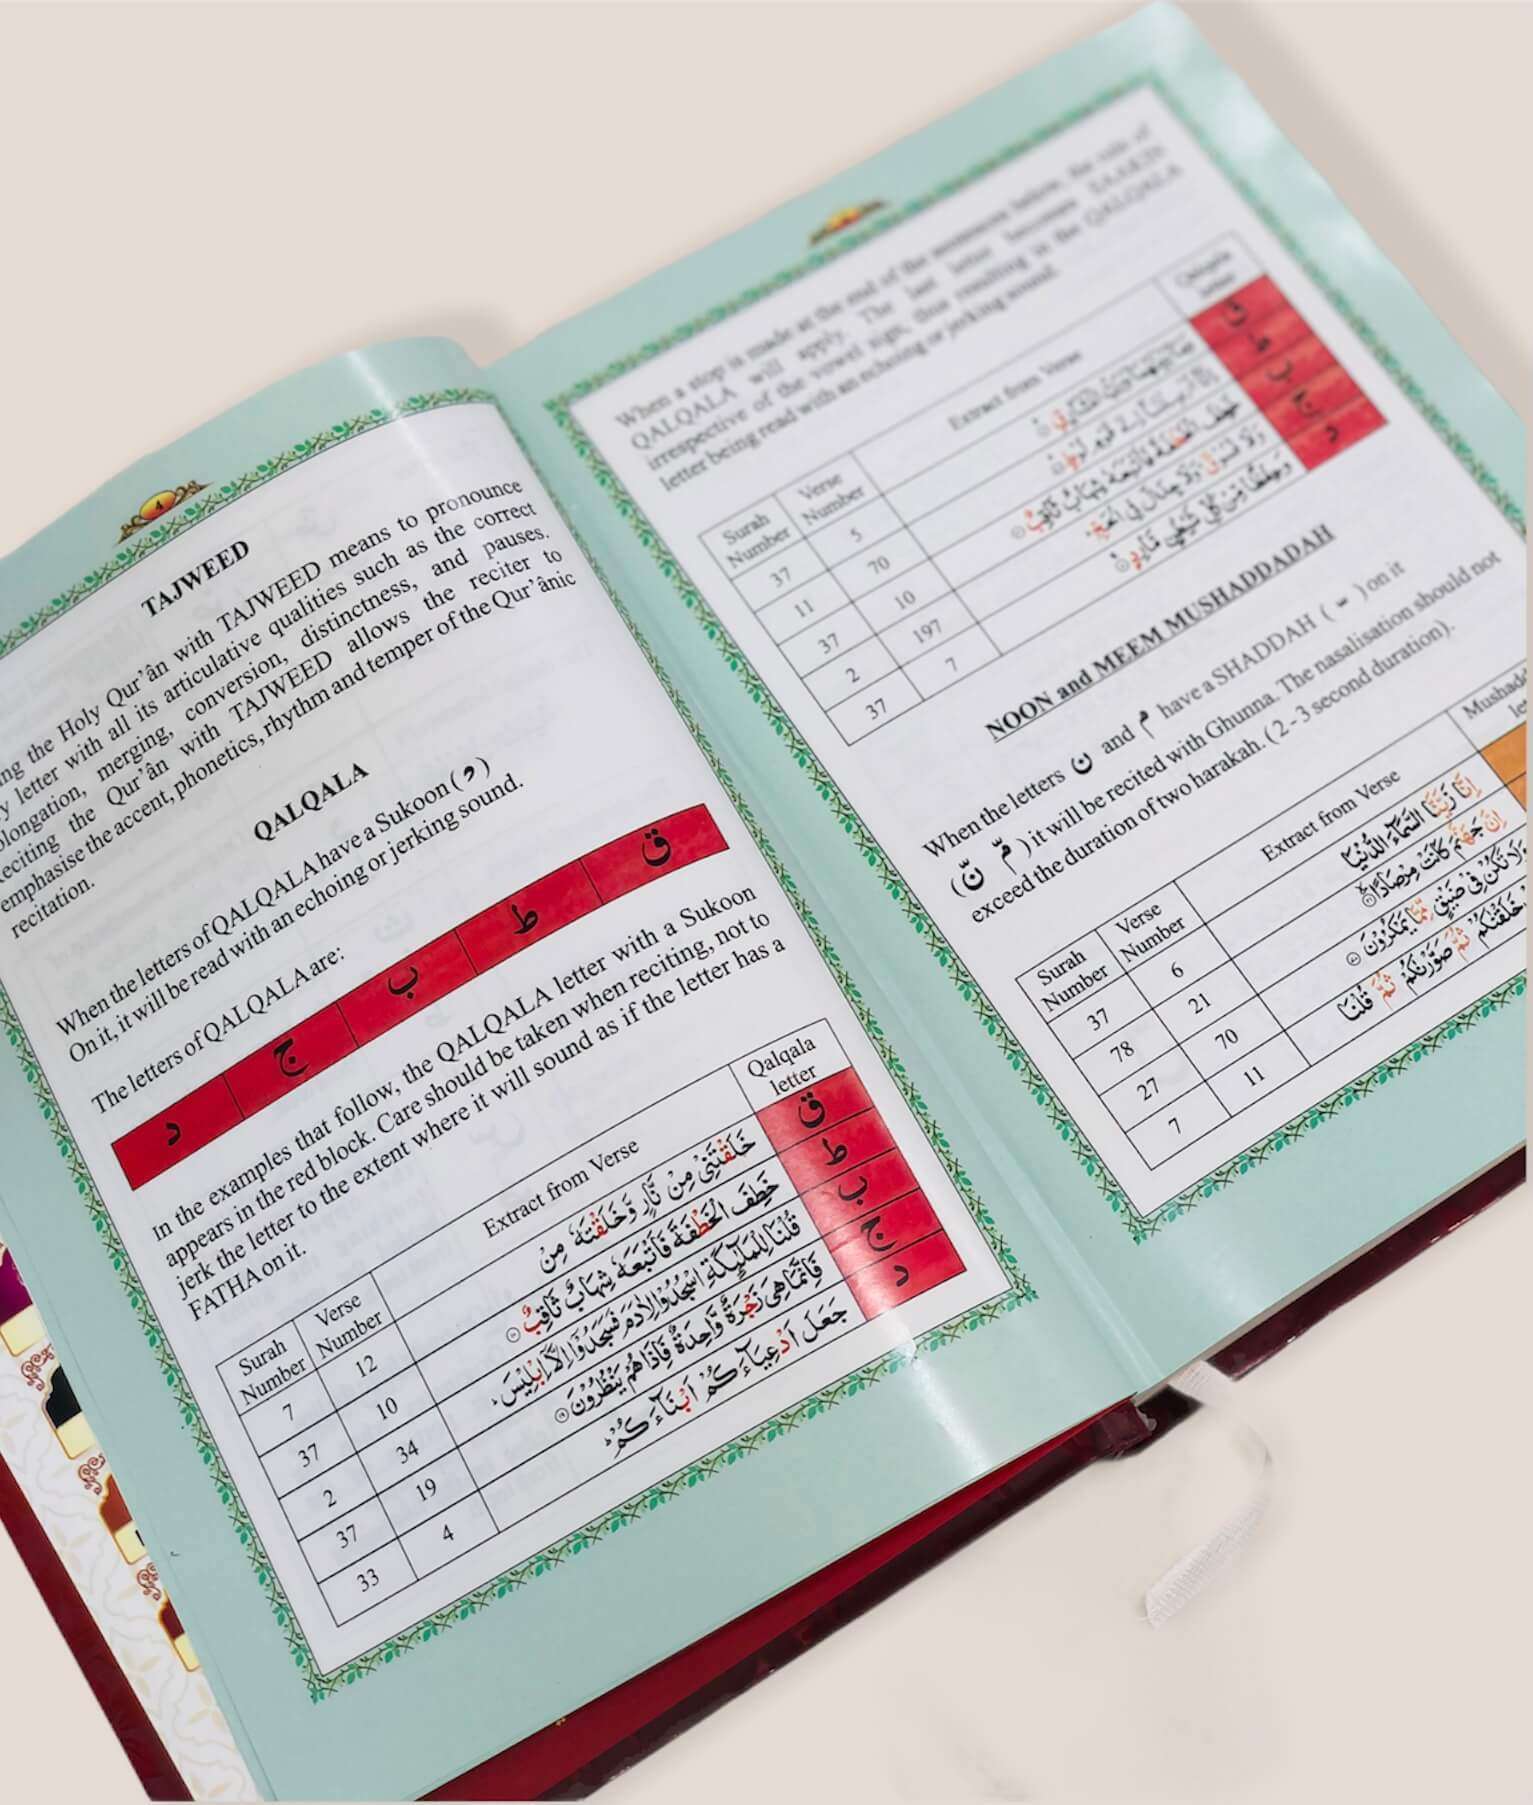 4
TAJWEED
the Holy Qur'ân with TAJWEED means to pronounce
letter with all its articulative qualities such as the correct
merging, conversion, distinctness, and pauses.
the Qur'ân with TAJWEED allows the reciter to
emphasise the accent, phonetics, rhythm and temper of the Qur'ânic
recitation.
QALQALA
When the letters of QALQALA have a Sukoon ( و )
On it, it will be read with an echoing or jerking sound.
The letters of QALQALA are:
ق ط ب ج د
In the examples that follow, the QALQALA letter with a Sukoon
appears in the red block. Care should be taken when reciting, not to
jerk the letter to the extent where it will sound as if the letter has a
FATHA on it.
Surah Number Verse Number Extract from Verse Qalqala letter
7 12 خَلَقْتَنِىْ مِنْ نَّارٍ وَّخَلَقْتَهٗ مِنْ ق
37 10 خَطِفَ الْخَطْفَةَ فَاَتْبَعَهٗ شِهَابٌ ثَاقِبٌ ۝۱۰ ط
2 34 قُلْنَا لِلْمَلٰٓئِكَةِ اسْجُدُوْا لِاٰدَمَ فَسَجَدُوْۤا اِلَّاۤ اِبْلِيْسَ ب
37 19 فَاِنَّمَا هِىَ زَجْرَةٌ وَّاحِدَةٌ فَاِذَا هُمْ يَنْظُرُوْنَ ۝۱۹ ج
33 4 جَعَلَ اَدْعِيَآءَكُمْ اَبْنَآءَكُمْ ؕ د
When a stop is made at the end of the sentences below, the rule of
QALQALA will apply. The last letter becomes SAAKIN
irrespective of the vowel sign, thus resulting in the QALQALA
letter being read with an echoing or jerking sound.
Surah Number Verse Number Extract from Verse Qalqala letter
37 5 ق
11 70 ط
37 10 خَطِفَ الْخَطْفَةَ فَاَتْبَعَهٗ شِهَابٌ ثَاقِبٌ ب
2 197 وَلَا فُسُوْقَ وَلَا جِدَالَ فِى الْحَجِّ ج
37 7 وَحِفْظًا مِّنْ كُلِّ شَيْطٰنٍ مَّارِدٍ د
NOON and MEEM MUSHADDADAH
When the letters ن and م have a SHADDAH ( ّ ) on it
( نّ مّ ) it will be recited with Ghunna. The nasalisation should not
exceed the duration of two harakah. ( 2 - 3 second duration).
Surah Number Verse Number Extract from Verse
37 6 اِنَّا زَيَّنَّا السَّمَآءَ الدُّنْيَا
78 21 اِنَّ جَهَنَّمَ كَانَتْ مِرْصَادًا
27 70 وَلَا تَكُنْ فِىْ ضَيْقٍ مِّمَّا يَمْكُرُوْنَ ۝۷۰
7 11 خَلَقْنٰكُمْ ثُمَّ صَوَّرْنٰكُمْ ثُمَّ قُلْنَا